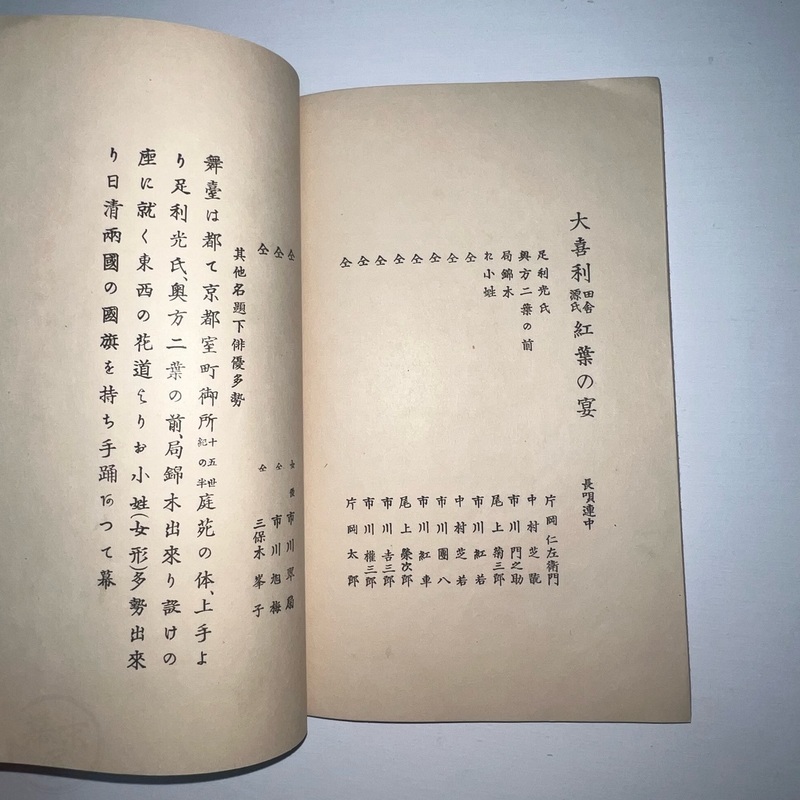 大喜利 田舎源氏 紅葉の宴 長唄連中
足利光氏 片岡仁左衛門
奥方二葉の前 中村芝翫
局錦木 市川門之助
お小姓 尾上菊三郎
仝 市川紅若
仝 中村芝若
仝 市川團八
仝 市川紅車
仝 尾上榮次郎
仝 市川吉三郎
仝 市川権三郎
仝 片岡太郎
仝 女優 市川翠扇
仝 仝 市川旭梅
仝 仝 三保木峯子
其他名題下俳優多勢
舞臺は都て京都室町御所十五世紀の半庭苑の体、上手よ
り足利光氏、奥方二葉の前、局錦木出來り設けの
座に就く東西の花道よりお小姓(女形)多勢出來
り日清兩國の國旗を持ち手踊あつて幕